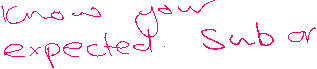 Know your
expected. Sub or